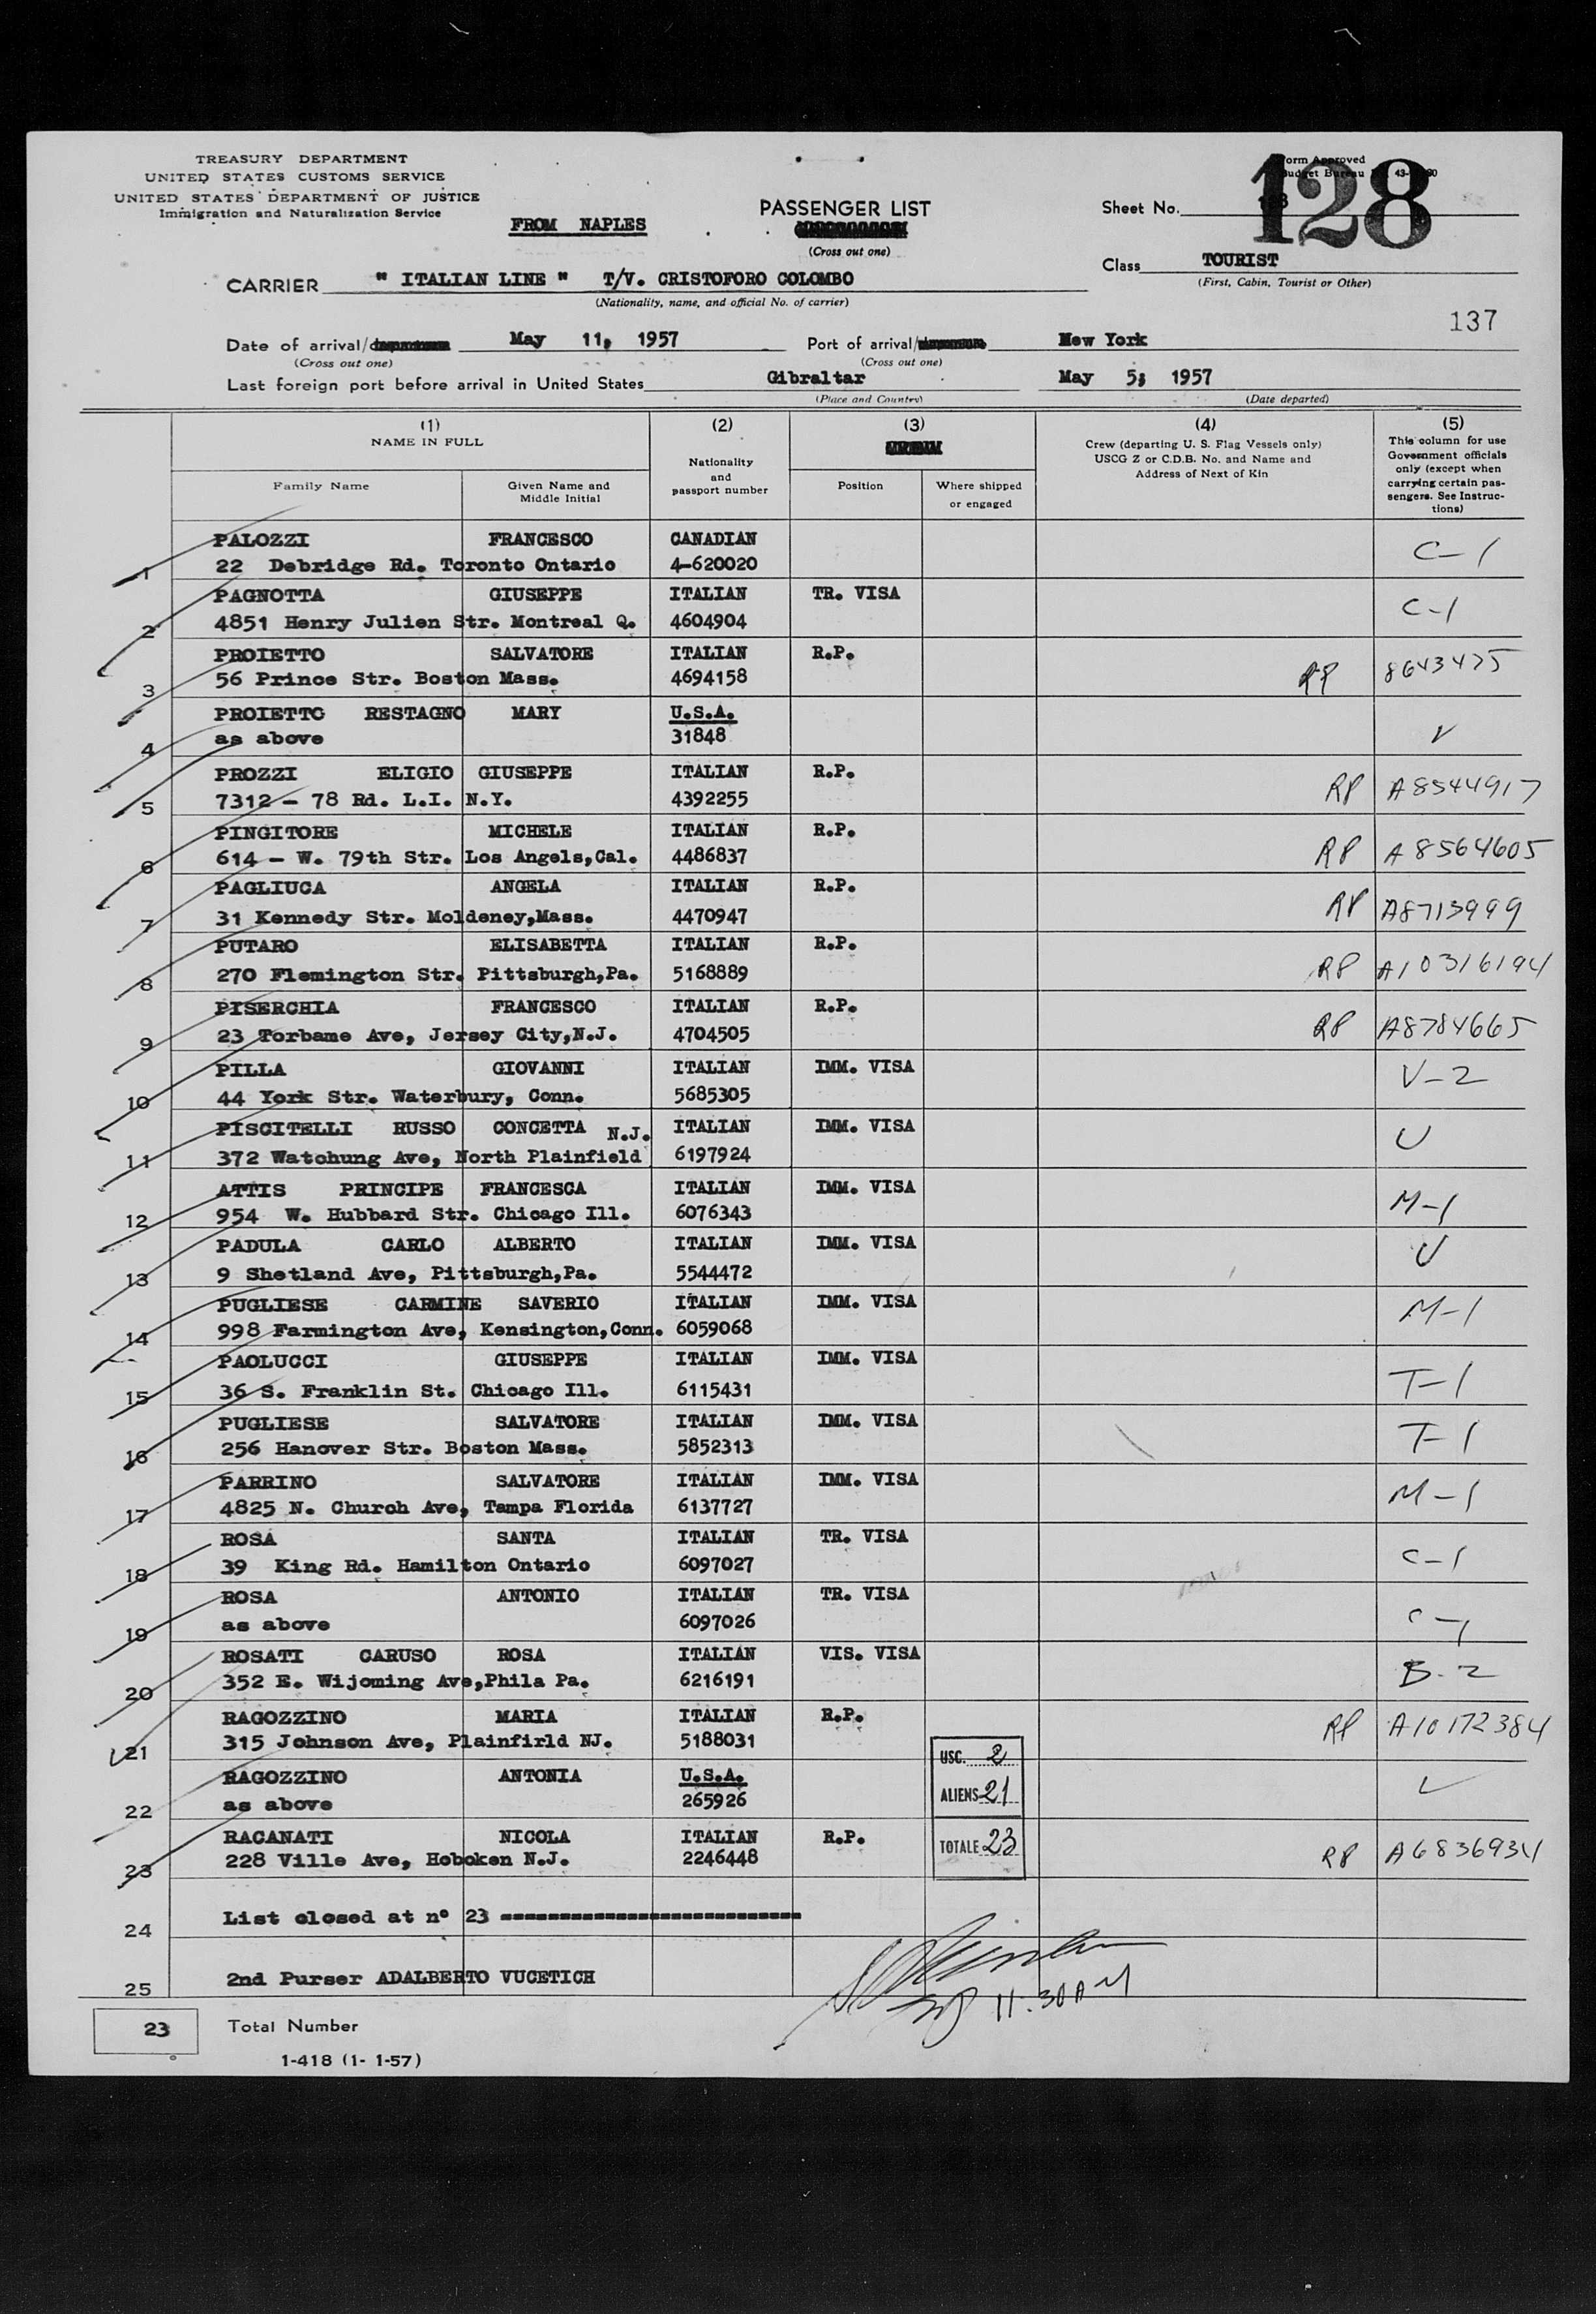 TREASURY DEPARTMENT
UNITED STATES CUSTOMS SERVICE
UNITED STATES DEPARTMENT OF JUSTICE
Immigration and Naturalization Service
FROM NAPLES
PASSENGER LIST
(Cross out one)
Form Approved
Budget Bureau
Sheet No.
128
Class TOURIST
(First, Cabin, Tourist or Other)
CARRIER " ITALIAN LINE " T/V. CRISTOFORO COLOMBO
(Nationality, name, and official No. of carrier)
137
Date of arrival/ May 11, 1957 Port of arrival/ New York
(Cross out one) (Cross out one)
Last foreign port before arrival in United States Gibraltar May 5; 1957
(Place and Country) (Date departed)
(1) (2) (3) (4) (5)
NAME IN FULL
Family Name
Given Name and
Middle Initial
Nationality
and
passport number
Position
Where shipped
or engaged
Crew (departing U. S. Flag Vessels only)
USCG Z or C.D.B. No. and Name and
Address of Next of Kin
This column for use
Government officials
only (except when
carrying certain pas-
sengers. See Instruc-
tions)
PALOZZI FRANCESCO CANADIAN C-1
1 22 Debridge Rd. Toronto Ontario 4-620020
PAGNOTTA GIUSEPPE ITALIAN TR. VISA C-1
2 4851 Henry Julien Str. Montreal Q. 4604904
PROIETTO SALVATORE ITALIAN R.P. RP 8643475
3 56 Prince Str. Boston Mass. 4694158
PROIETTO RESTAGNO MARY U.S.A.
4 as above 31848
PROZZI ELIGIO GIUSEPPE ITALIAN R.P. RP A8544917
5 7312 - 78 Rd. L.I. N.Y. 4392255
PINGITORE MICHELE ITALIAN R.P. RP A8564605
6 614 - W. 79th Str. Los Angels,Cal. 4486837
PAGLIUCA ANGELA ITALIAN R.P. RP A8713999
7 31 Kennedy Str. Moldeney,Mass. 4470947
PUTARO ELISABETTA ITALIAN R.P. RP A10316194
8 270 Flemington Str. Pittsburgh,Pa. 5168889
PISERCHIA FRANCESCO ITALIAN R.P. RP A8784665
9 23 Torbame Ave, Jersey City,N.J. 4704505
PILLA GIOVANNI ITALIAN IMM. VISA V-2
10 44 York Str. Waterbury, Conn. 5685305
PISCITELLI RUSSO CONCETTA N.J. ITALIAN IMM. VISA U
11 372 Watchung Ave, North Plainfield 6197924
ATTIS PRINCIPE FRANCESCA ITALIAN IMM. VISA M-1
12 954 W. Hubbard Str. Chicago Ill. 6076343
PADULA CARLO ALBERTO ITALIAN IMM. VISA U
13 9 Shetland Ave, Pittsburgh,Pa. 5544472
PUGLIESE CARMINE SAVERIO ITALIAN IMM. VISA M-1
14 998 Farmington Ave, Kensington,Conn. 6059068
PAOLUCCI GIUSEPPE ITALIAN IMM. VISA T-1
15 36 S. Franklin St. Chicago Ill. 6115431
PUGLIESE SALVATORE ITALIAN IMM. VISA T-1
16 256 Hanover Str. Boston Mass. 5852313
PARRINO SALVATORE ITALIAN IMM. VISA M-1
17 4825 N. Church Ave, Tampa Florida 6137727
ROSA SANTA ITALIAN TR. VISA C-1
18 39 King Rd. Hamilton Ontario 6097027
ROSA ANTONIO ITALIAN TR. VISA C-1
19 as above 6097026
ROSATI CARUSO ROSA ITALIAN VIS. VISA B-2
20 352 E. Wijoming Ave,Phila Pa. 6216191
RAGOZZINO MARIA ITALIAN R.P. RP A10172384
21 315 Johnson Ave, Plainfirld NJ. 5188031
RAGOZZINO ANTONIA U.S.A.
22 as above 265926
RACANATI NICOLA ITALIAN R.P. RP A6836934
23 228 Ville Ave, Hoboken N.J. 2246448
USC. 2
ALIENS 21
TOTALE 23
24 List closed at n° 23
25 2nd Purser ADALBERTO VUCETICH
11:30 AM
23 Total Number
1-418 (1- 1-57)